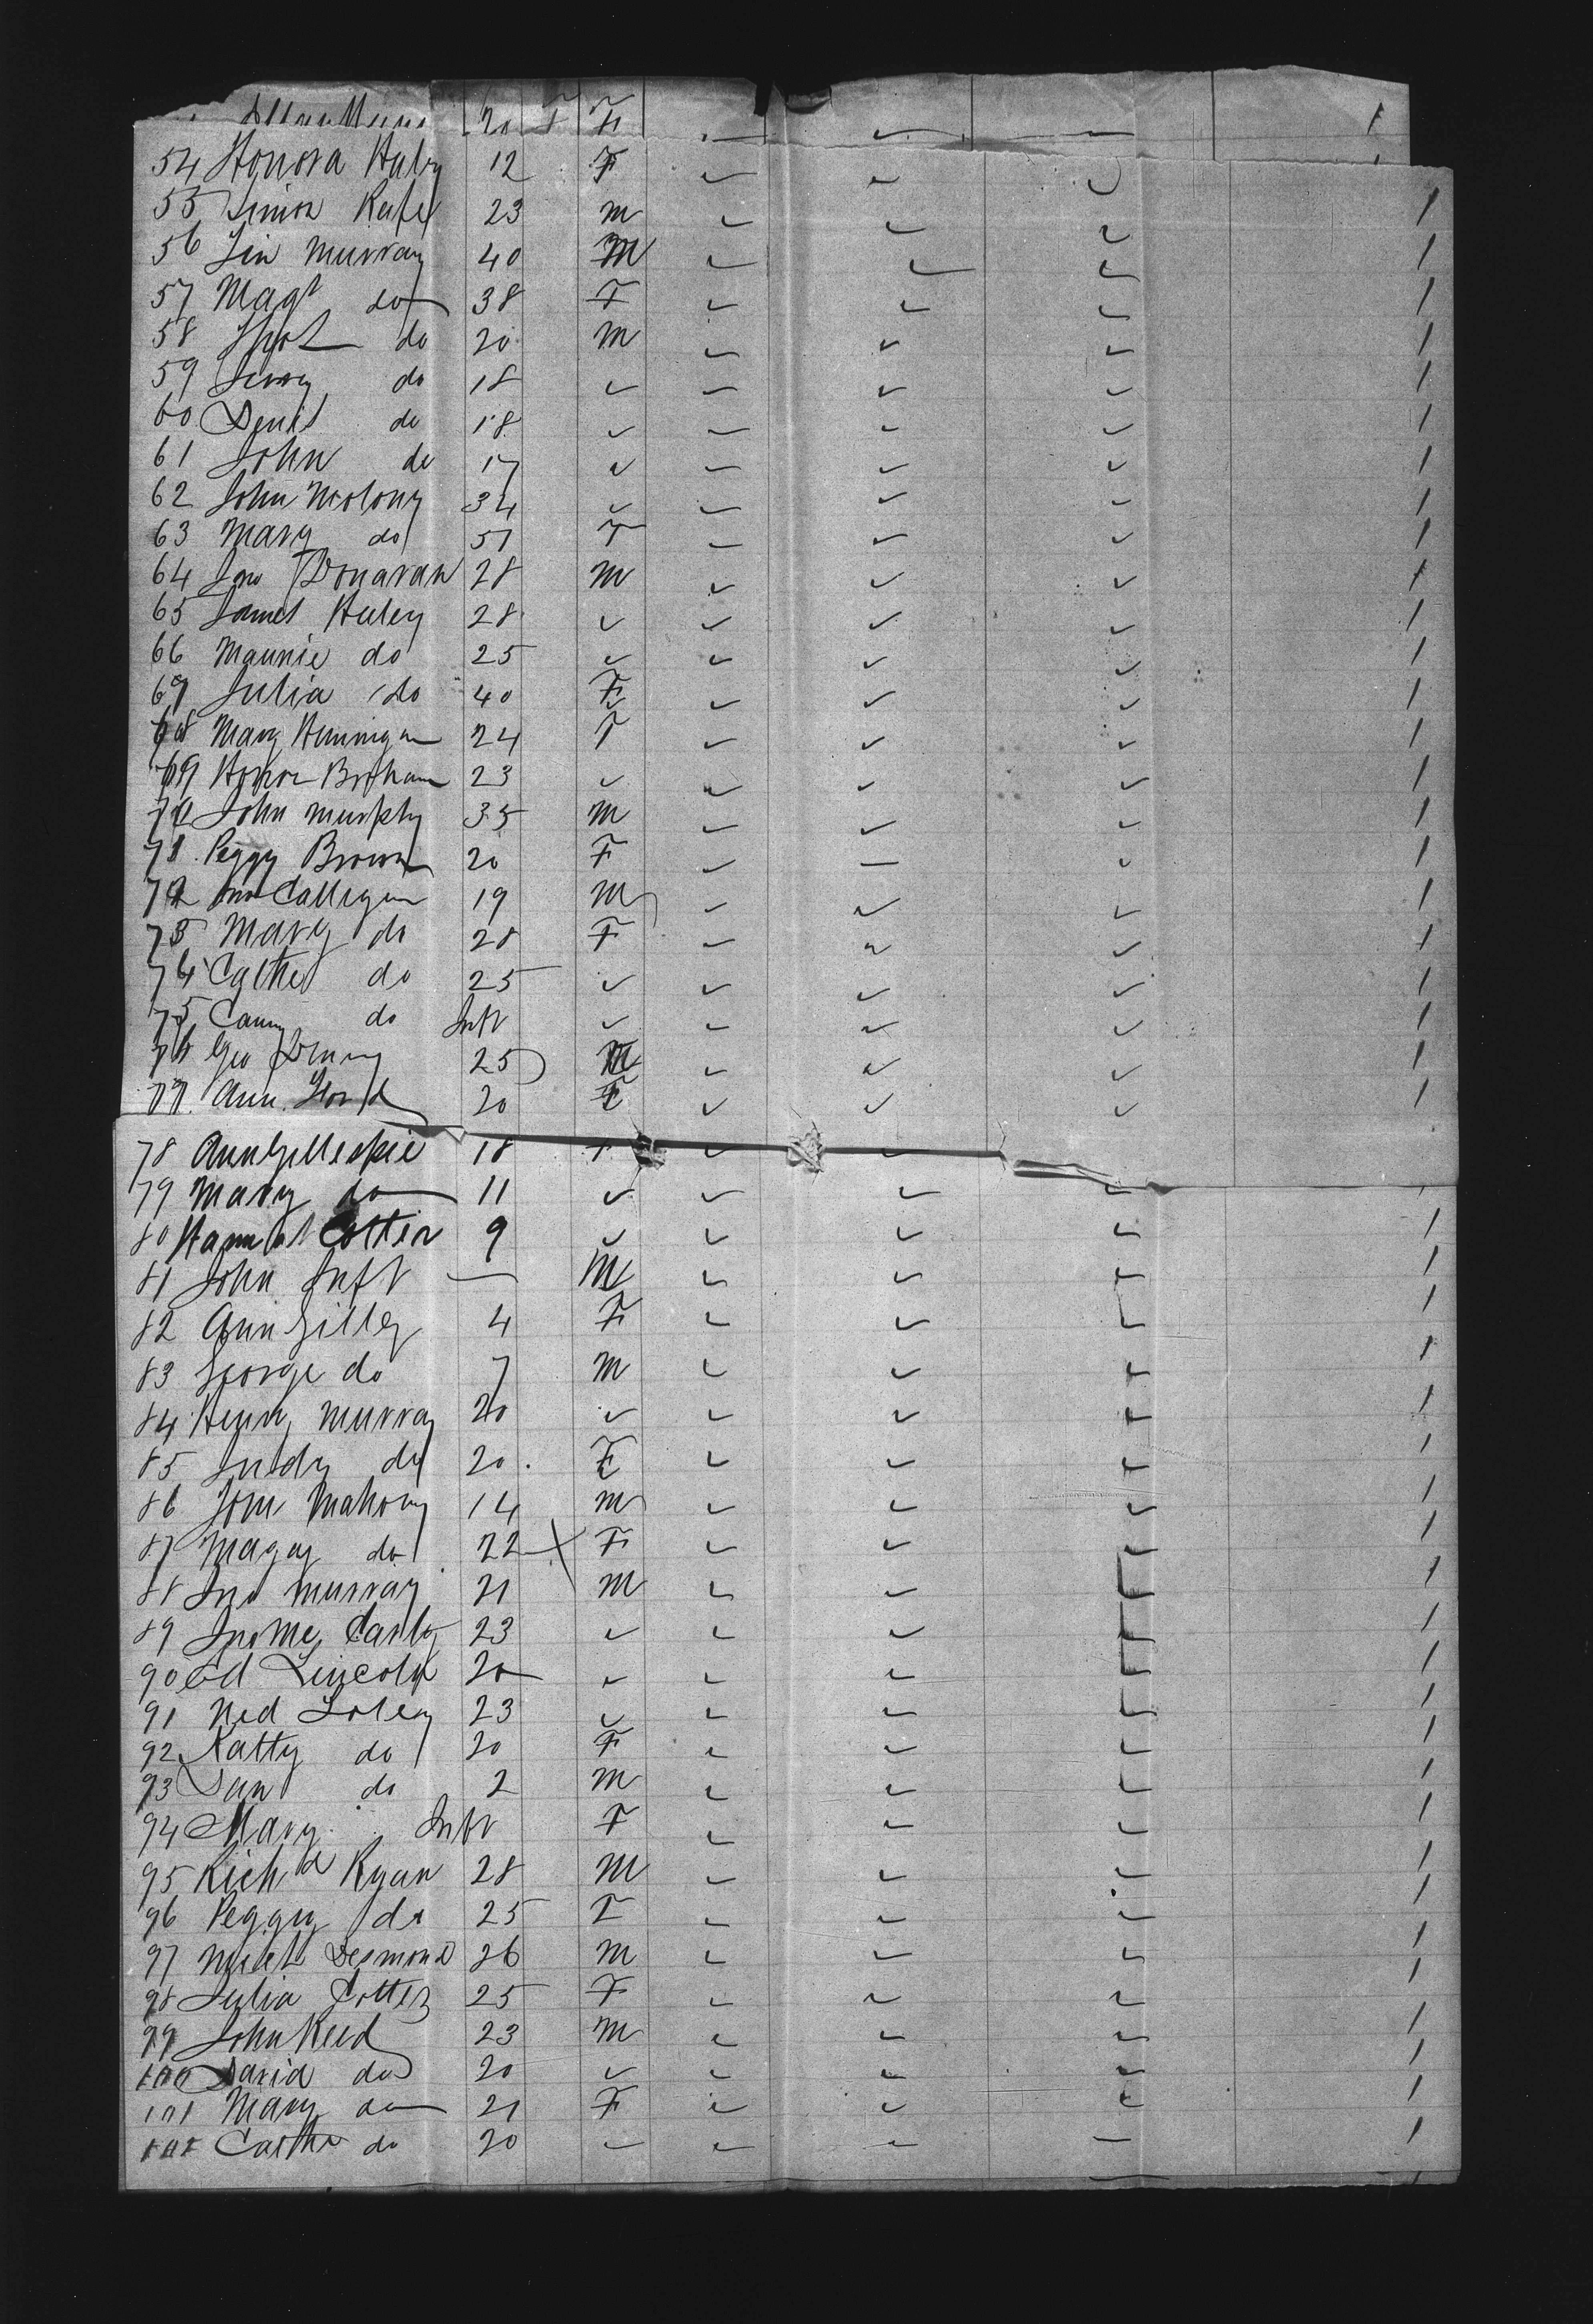 20 F F ✓ ✓ 1
54 Honora Haley 12 F ✓ ✓ ✓
55 Simon 23 m ✓ ✓ ✓ 1
56 Murray 40 M ✓ ✓ ✓ 1
57 Magt do 38 F ✓ ✓ ✓ 1
58 do 20 m ✓ ✓ ✓ 1
59 Jerry do 18 ✓ ✓ ✓ ✓ 1
60 Denis do 18 ✓ ✓ ✓ ✓ 1
61 John do 17 ✓ ✓ ✓ ✓ 1
62 John Molony 34 ✓ ✓ ✓ ✓ 1
63 Mary do 51 F ✓ ✓ ✓ 1
64 Jno Donavan 28 m ✓ ✓ ✓ 1
65 James Haley 28 ✓ ✓ ✓ ✓ 1
66 Maunie do 25 ✓ ✓ ✓ ✓ 1
67 Julia do 40 F ✓ ✓ ✓ 1
68 Mary Hennigan 24 F ✓ ✓ ✓ 1
69 Honor 23 ✓ ✓ ✓ ✓ 1
70 John Murphy 35 m ✓ ✓ ✓ 1
71 Peggy Brown 20 F ✓ — ✓ 1
72 Jno Calligan 19 m ✓ ✓ ✓ 1
73 Mary do 28 F ✓ ✓ ✓ 1
74 Cathe do 25 ✓ ✓ ✓ ✓ 1
75 do Inft ✓ ✓ ✓ ✓ 1
76 Geo 25 M ✓ ✓ ✓ 1
77 Ann Ford 20 F ✓ ✓ ✓ 1
78 Ann Gillespie 18 F ✓ ✓
79 Mary do 11 ✓ ✓ ✓ ✓ 1
80 Hannah Cotter 9 ✓ ✓ ✓ ✓ 1
81 John Inft — M ✓ ✓ ✓ 1
82 Ann Gilley 4 F ✓ ✓ ✓ 1
83 George do 7 m ✓ ✓ ✓ 1
84 Henry Murray 20 ✓ ✓ ✓ ✓ 1
85 Judy do 20 F ✓ ✓ ✓ 1
86 Tom Mahony 14 m ✓ ✓ ✓ 1
87 Maggy do 22 X F ✓ ✓ ✓ 1
88 Jno Murray 21 m ✓ ✓ ✓ 1
89 Jno Mc Carty 23 ✓ ✓ ✓ ✓ 1
90 Ed Lincoln 20 ✓ ✓ ✓ ✓ 1
91 Ned Foley 23 ✓ ✓ ✓ ✓ 1
92 Katty do 20 F ✓ ✓ ✓ 1
93 Dan do 2 m ✓ ✓ ✓ 1
94 Mary Inft F ✓ ✓ ✓ 1
95 Richd Ryan 28 M ✓ ✓ ✓ 1
96 Peggy do 25 F ✓ ✓ ✓ 1
97 Desmond 26 m ✓ ✓ ✓ 1
98 Julia Cotter 25 F ✓ ✓ ✓ 1
99 John Reed 23 m ✓ ✓ ✓ 1
100 David do 20 ✓ ✓ ✓ ✓ 1
101 Mary do 21 F ✓ ✓ ✓ 1
102 Cathe do 20 ✓ ✓ ✓ — 1